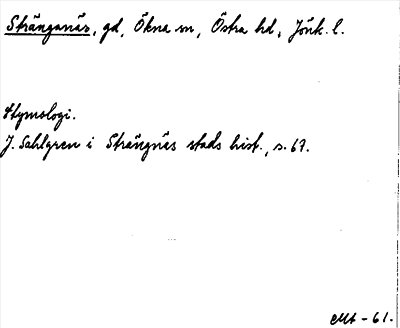 Stränganäs, gd, Ökna sn, Östra hd, Jönk. l.
Etymologi.
J. Sahlgren i Strängnäs stads hist., s. 67.
EMt - 61.